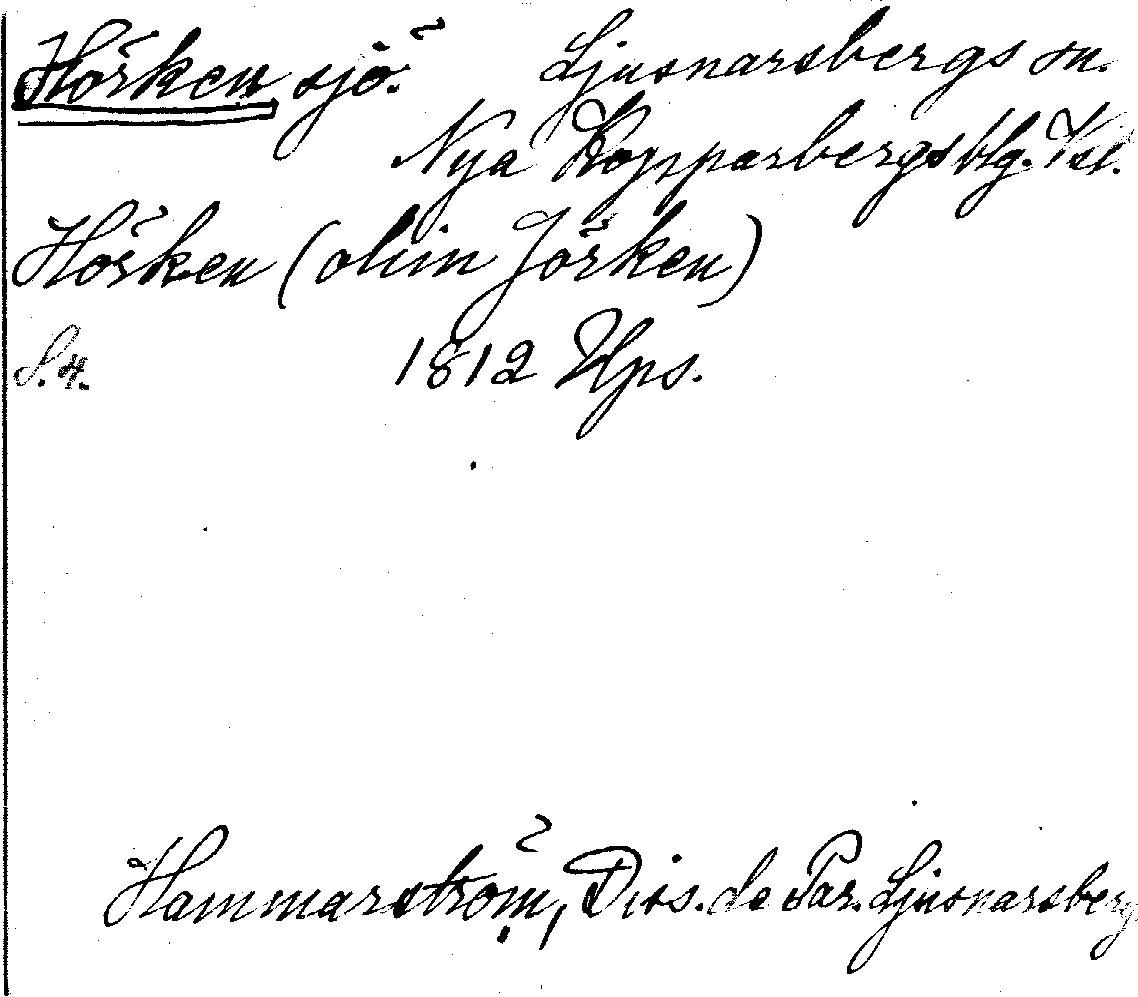 Hörken sjö. Ljusnarsbergs sn.
Nya Kopparbergs blg. Vsl.
Hörken (olim Jörken)
S. 4. 1812 Ups.
Hammarström, Diss. de Par. Ljusnarsberg